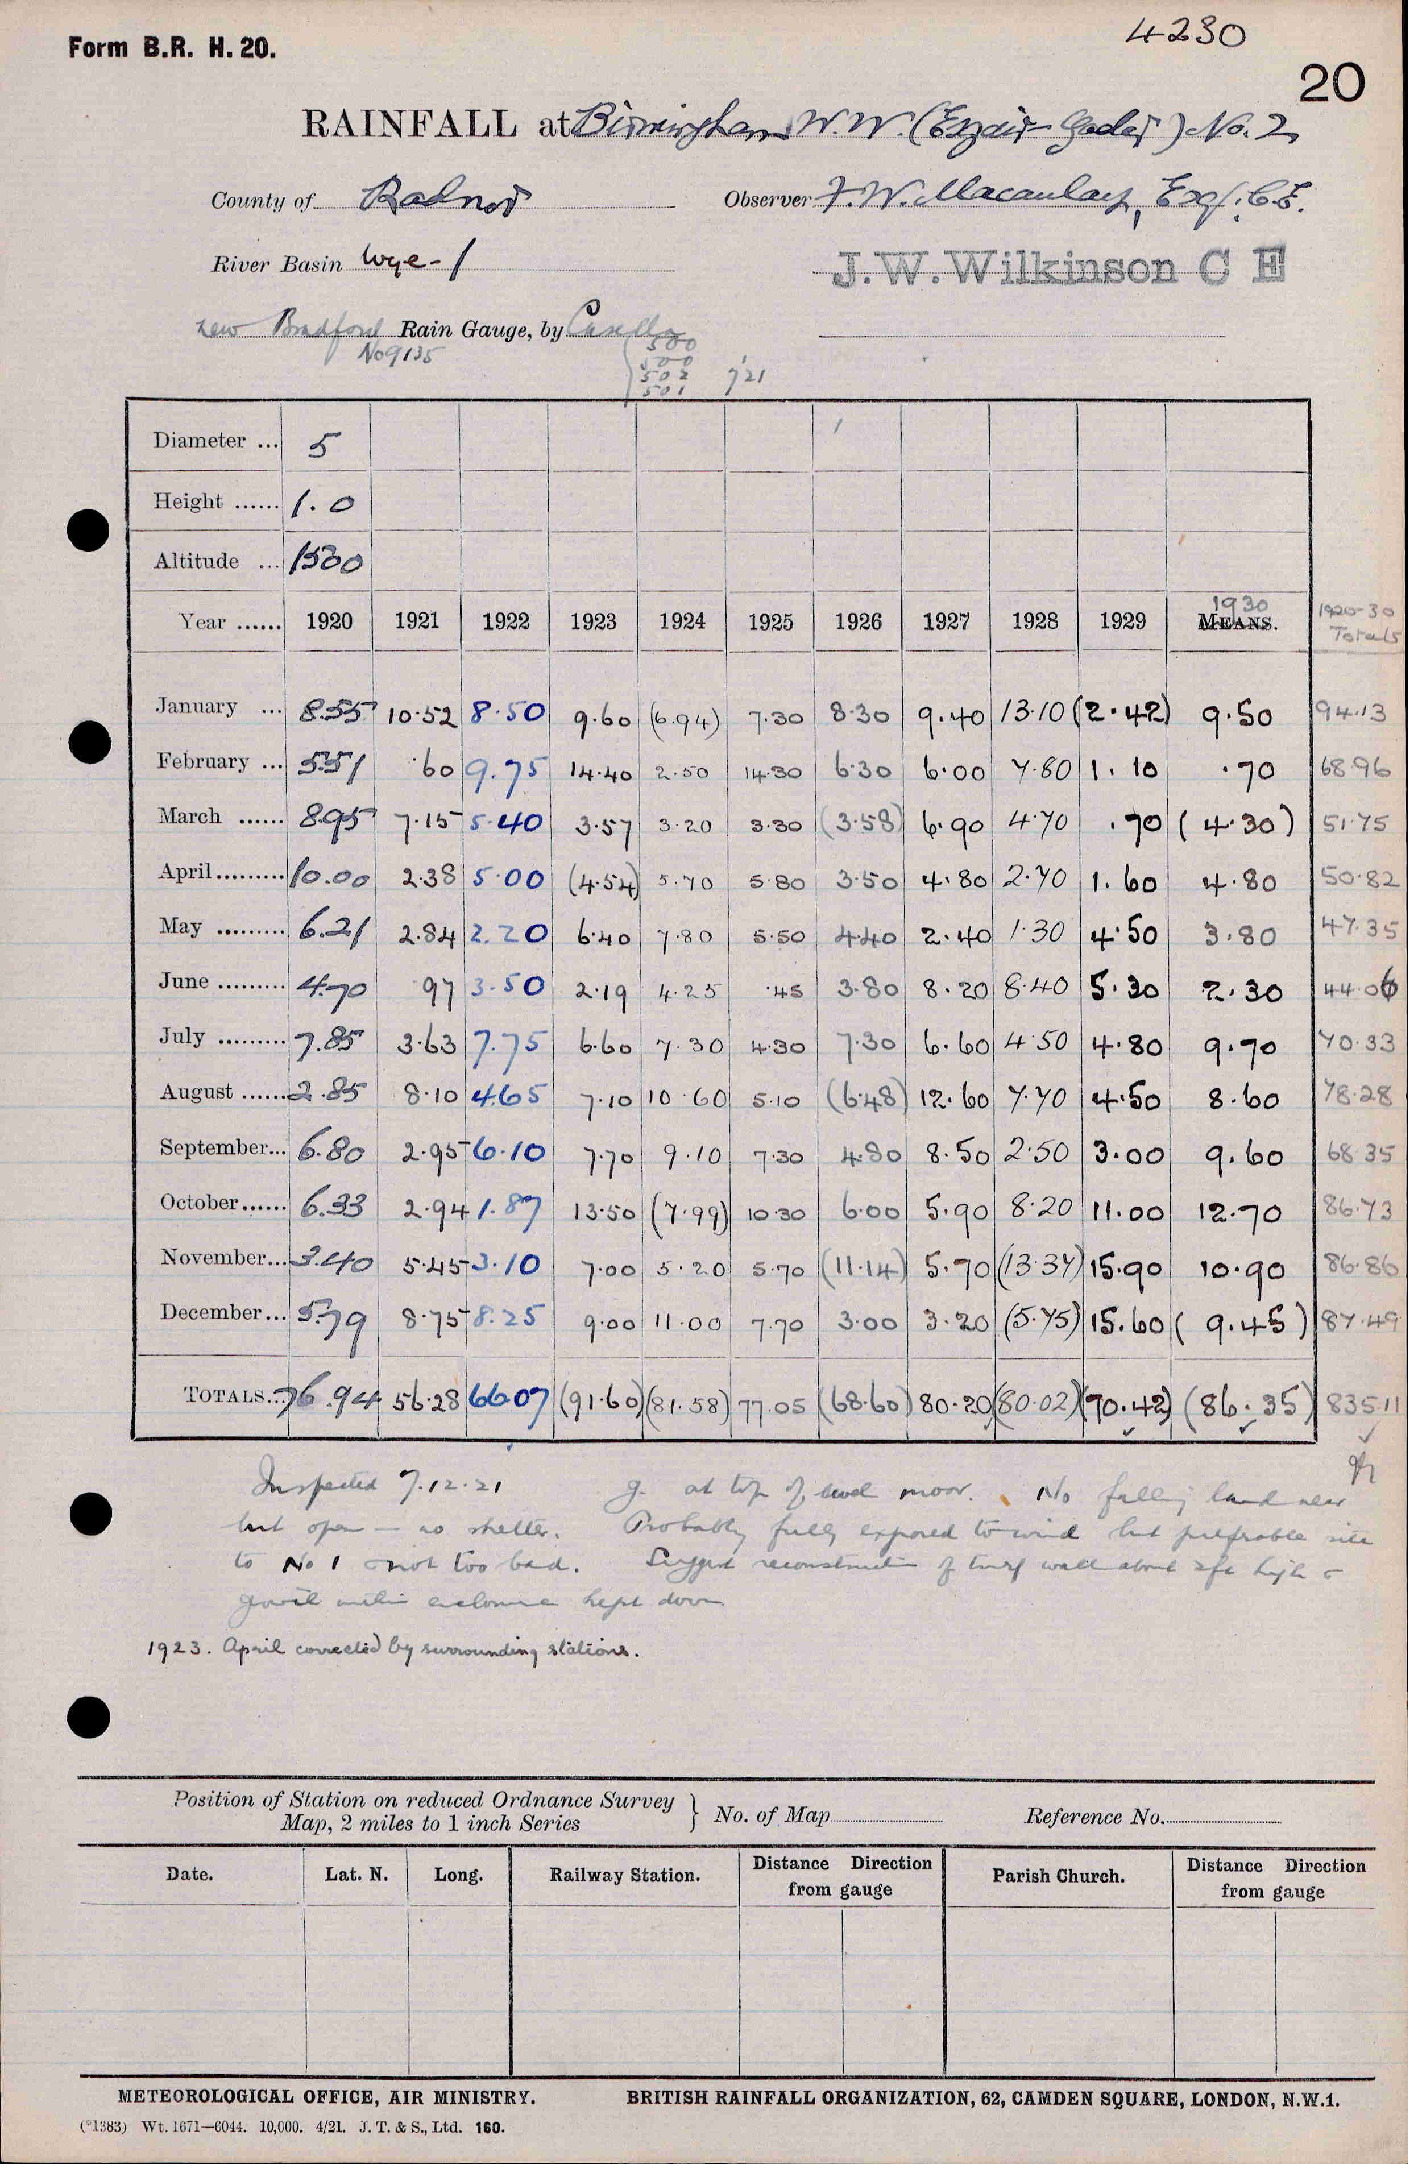 4230
Form B.R. H. 20.
20
RAINFALL at Birmingham W.W. (Esgair Gader) No. 2
County of Radnor Observer F. W. Macaulay, Esq., C.E.
River Basin Wye - 1 J. W. Wilkinson C E
New Bradford Rain Gauge, by Casella
No 9135
500
500
502 7'21
501
Diameter ... 5
Height ...... 1.0
Altitude ... 1500
1930
Year ...... 1920 1921 1922 1923 1924 1925 1926 1927 1928 1929 MEANS. 1920-30 Totals
January ... 8.55 10.52 8.50 9.60 (6.94) 7.30 8.30 9.40 13.10 (2.42) 9.50 94.13
February ... 5.51 .60 9.75 14.40 2.50 14.30 6.30 6.00 7.80 1.10 .70 68.96
March ...... 8.95 7.15 5.40 3.57 3.20 3.30 (3.58) 6.90 4.70 .70 (4.30) 51.75
April ......... 10.00 2.38 5.00 (4.54) 5.70 5.80 3.50 4.80 2.70 1.60 4.80 50.82
May ......... 6.21 2.84 2.20 6.40 7.80 5.50 4.40 2.40 1.30 4.50 3.80 47.35
June ......... 4.70 .97 3.50 2.19 4.25 .45 3.80 8.20 8.40 5.30 2.30 44.06
July ......... 7.85 3.63 7.75 6.60 7.30 4.30 7.30 6.60 4.50 4.80 9.70 70.33
August ...... 2.85 8.10 4.65 7.10 10.60 5.10 (6.48) 12.60 7.70 4.50 8.60 78.28
September... 6.80 2.95 6.10 7.70 9.10 7.30 4.80 8.50 2.50 3.00 9.60 68.35
October ...... 6.33 2.94 1.87 13.50 (7.99) 10.30 6.00 5.90 8.20 11.00 12.70 86.73
November... 3.40 5.45 3.10 7.00 5.20 5.70 (11.14) 5.70 (13.37) 15.90 10.90 86.86
December... 5.79 8.75 8.25 9.00 11.00 7.70 3.00 3.20 (5.75) 15.60 (9.45) 87.49
TOTALS... 76.94 56.28 66.07 (91.60) (81.58) 77.05 (68.60) 80.20 (80.02) (70.42) (86.35) 835.11
Inspected 7.12.21 g. at top of level moor. No falling land near
but open — no shelter. Probably fully exposed to wind but preferable site
to No 1 & not too bad. Suggest reconstruction of turf wall about 2ft high &
growth within enclosure kept down
1923. April corrected by surrounding stations.
Position of Station on reduced Ordnance Survey
Map, 2 miles to 1 inch Series } No. of Map Reference No.
Date. Lat. N. Long. Railway Station. Distance Direction from gauge Parish Church. Distance Direction from gauge
METEOROLOGICAL OFFICE, AIR MINISTRY. BRITISH RAINFALL ORGANIZATION, 62, CAMDEN SQUARE, LONDON, N.W.1.
(*1383) Wt. 1671—6044. 10,000. 4/21. J. T. & S., Ltd. 160.